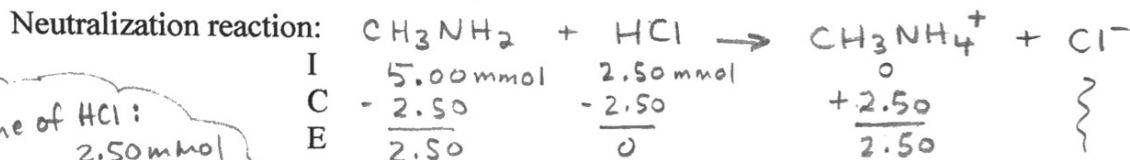 Neutralization reaction: CH₃NH₂ + HCl → CH₃NH₄⁺ + Cl⁻
I 5.00 mmol 2.50 mmol 0
C - 2.50 - 2.50 + 2.50
of HCl:
E 2.50 0 2.50
2.50 mmol